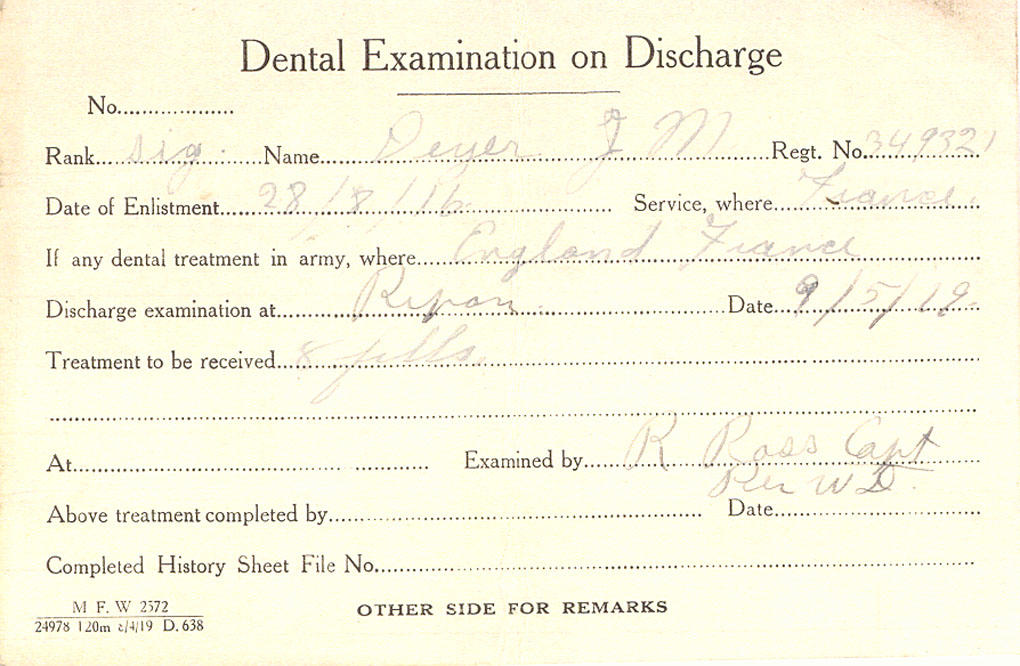 Dental Examination on Discharge
No..................
Rank.... Sig. Name.... Deyer J M Regt. No. 349321
Date of Enlistment..... 28/8/16 Service, where.... France.
If any dental treatment in army, where.... England France
Discharge examination at.... Ripon. Date.. 9/5/19.
Treatment to be received.... 8 fills
At.... Examined by..... R Ross Capt
Per W D.
Above treatment completed by.... Date....
Completed History Sheet File No....
M F. W 2572 OTHER SIDE FOR REMARKS
24978 120m 8/4/19 D. 638